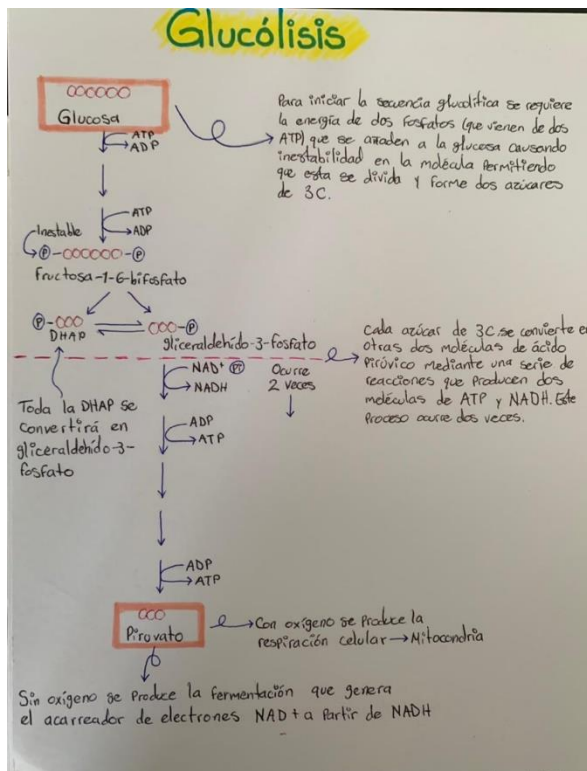 Glucólisis
Glucosa
ATP
ADP
Para iniciar la secuencia glucolítica se requiere
la energía de dos fosfatos (que vienen de dos
ATP) que se añaden a la glucosa causando
inestabilidad en la molécula permitiendo
que esta se divida y forme dos azúcares
de 3C.
ATP
ADP
Inestable
P
P
fructosa-1-6-bifosfato
P
DHAP
P
gliceraldehído-3-fosfato
Cada azúcar de 3C se convierte en
otras dos moléculas de ácido
pirúvico mediante una serie de
reacciones que producen dos
moléculas de ATP y NADH. Este
proceso ocurre dos veces.
NAD+
NADH
Ocurre
2 veces
Toda la DHAP se
convertirá en
gliceraldehído-3-
fosfato
ADP
ATP
ADP
ATP
Pirovato
Con oxígeno se produce la
respiración celular → Mitocondria
Sin oxígeno se produce la fermentación que genera
el acarreador de electrones NAD+ a partir de NADH